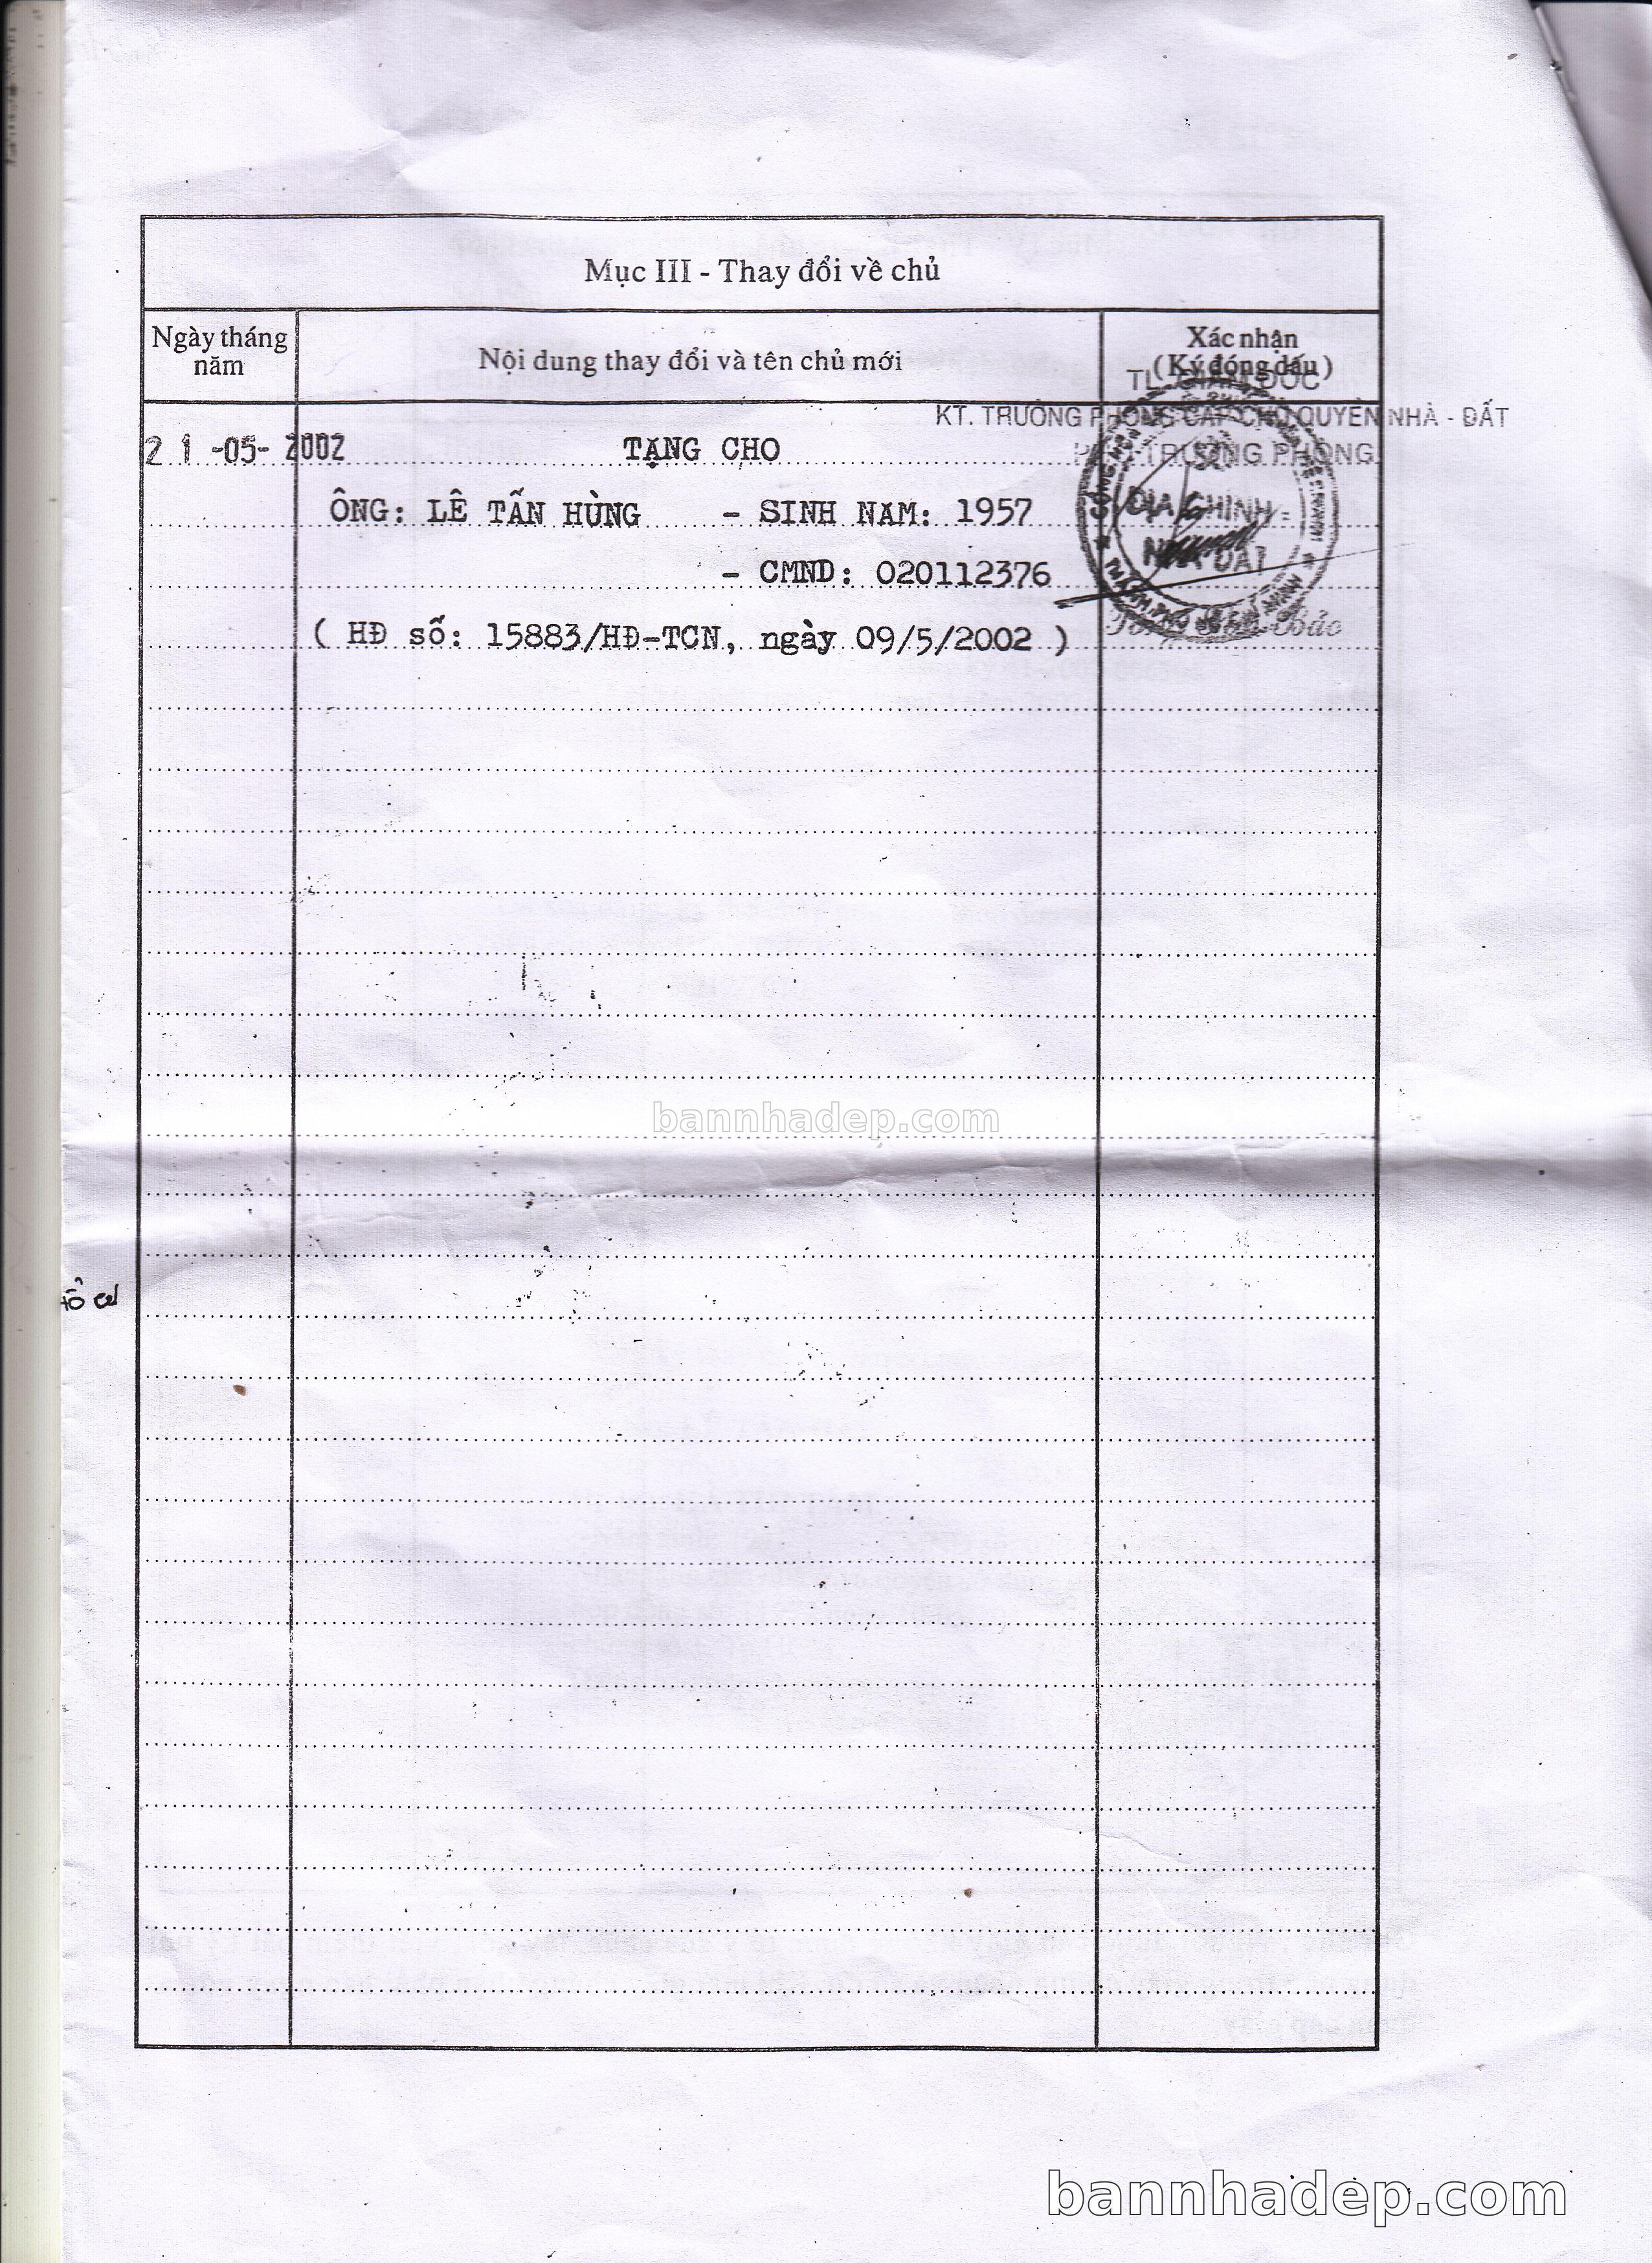 Mục III - Thay đổi về chủ
Ngày tháng năm
Nội dung thay đổi và tên chủ mới
Xác nhận
(Ký đóng dấu)
TL. GIÁM ĐỐC
KT. TRƯỞNG PHÒNG CẤP CHỦ QUYỀN NHÀ - ĐẤT
PHÓ TRƯỞNG PHÒNG
21-05-2002
TẶNG CHO
ÔNG: LÊ TẤN HÙNG - SINH NĂM: 1957
- CMND: 020112376
( HĐ số: 15883/HĐ-TCN, ngày 09/5/2002 )
ĐỊA CHÍNH -
NHÀ ĐẤT
Bảo
bannhadep.com
bannhadep.com